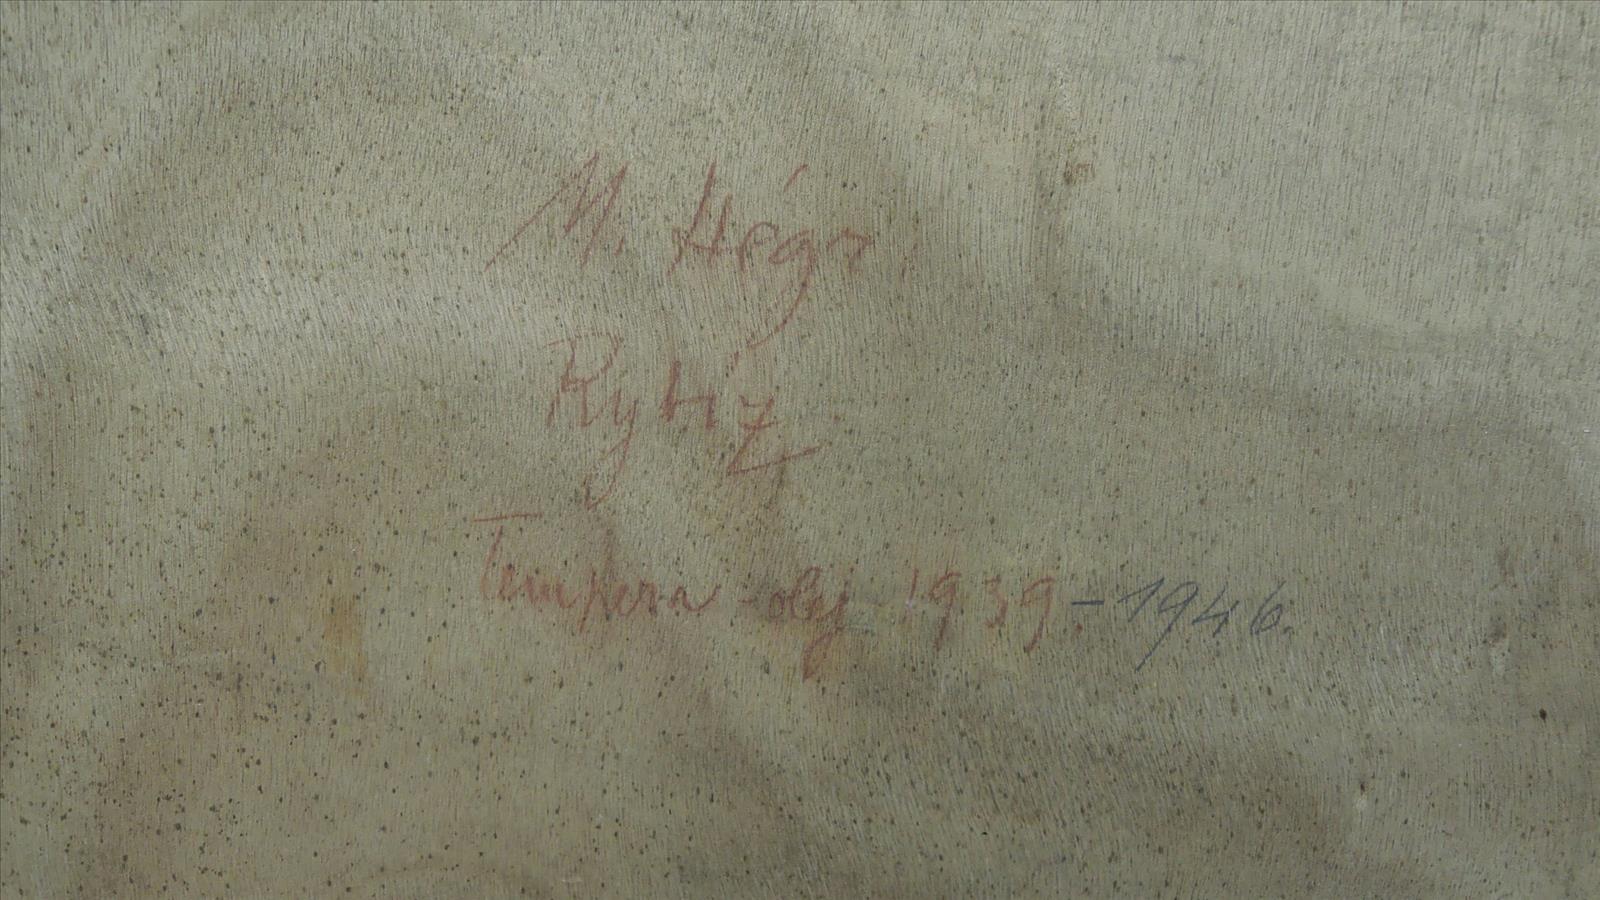 M. Hégr
Rybíz
Tempera - olej 1939. - 1946.